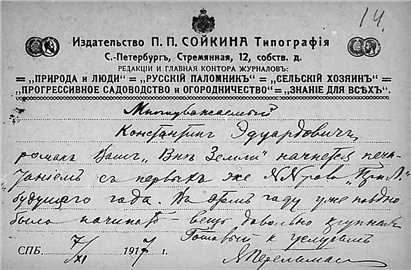 14.
Издательство П. П. СОЙКИНА Типографія
С.-Петербург, Стремянная, 12, собств. д.
РЕДАКЦИИ И ГЛАВНАЯ КОНТОРА ЖУРНАЛОВЪ:
„ПРИРОДА И ЛЮДИ“ = „РУССКІЙ ПАЛОМНИКЪ“ = „СЕЛЬСКІЙ ХОЗЯИНЪ“
„ПРОГРЕССИВНОЕ САДОВОДСТВО И ОГОРОДНИЧЕСТВО“ = „ЗНАНІЕ ДЛЯ ВСѢХЪ“
Многоуважаемый
Константин Эдуардович,
роман Ваш „Вне Земли“ начнется печа-
таніем с первых же №№ров „ПриЛ“
будущего года. В этом году уже поздно
было начинать вещь довольно крупная
Готовый к услугам
СПБ. 7/XI 1917 г. Я Перельман